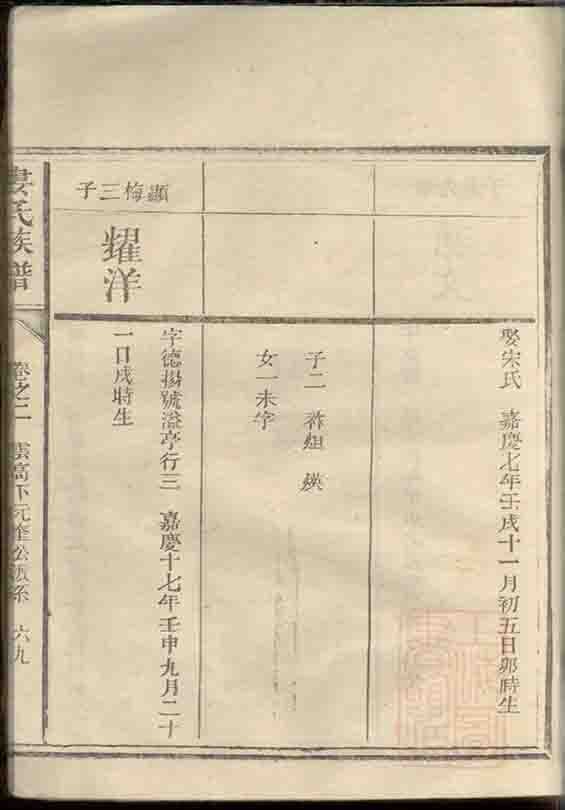 娶宋氏 嘉慶七年壬戌十一月初五日卯時生
子二
女一未字
顯梅三子
耀洋
字德揚號溢亭行三 嘉慶十七年壬申九月二十
一日戌時生
婁氏族譜
卷之二 雲高下元 公派系 六九